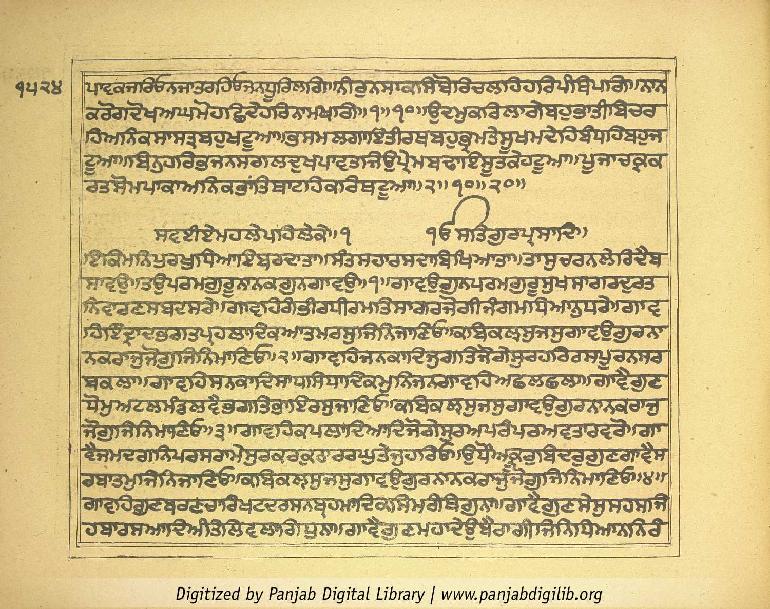 ੧੫੨੪
ਪਾਵਕਜਰਿਓਨਜਾਤਰਹਿਓਜਨਧੂਰਿਲਾਗਿ॥ਨੀਰੁਨਸਾਕਸਿਬੋਰਿਚਲਹਿਹਰਿਪੰਥਿਪਾਗਿ॥ਨਾਨ
ਕਰੋਗਦੋਖਅਘਮੋਹਛਿਦੇਹਰਿਨਾਮਖਾਗਿ॥੧॥੧੦॥ਉਦਮੁਕਰਿਲਾਗੇਬਹੁਭਾਤੀਬਿਚਰ
ਹਿਅਨਿਕਸਾਸਤ੍ਰਬਹੁਖਟੂਆ॥ਭਸਮਲਗਾਇਤੀਰਥਬਹੁਭ੍ਰਮਤੇਸੂਖਮਦੇਹਬੰਧਹਿਬਹੁਜ
ਟੂਆ॥ਬਿਨੁਹਰਿਭਜਨਸਗਲਦੁਖਪਾਵਤਜਿਉਪ੍ਰੇਮਬਢਾਇਸੂਤਕੇਹਟੂਆ॥ਪੂਜਾਚਕ੍ਰਕ
ਰਤਸੋਮਪਾਕਾਅਨਿਕਭਾਂਤਿਥਾਟਹਿਕਰਿਥਟੂਆ॥੨॥੧੦॥੨੦॥
ਸਵਈਏਮਹਲੇਪਹਿਲੇਕੇ॥੧ ੴਸਤਿਗੁਰਪ੍ਰਸਾਦਿ॥
ਇਕਮਨਿਪੁਰਖੁਧਿਆਇਬਰਦਾਤਾ॥ਸੰਤਸਹਾਰਸਦਾਬਿਖਿਆਤਾ॥ਤਾਸੁਚਰਨਲੇਰਿਦੈਬ
ਸਾਵਉ॥ਤਉਪਰਮਗੁਰੂਨਾਨਕਗੁਨਗਾਵਉ॥੧॥ਗਾਵਉਗੁਨਪਰਮਗੁਰੂਸੁਖਸਾਗਰਦੁਰਤ
ਨਿਵਾਰਣਸਬਦਸਰੇ॥ਗਾਵਹਿਗੰਭੀਰਧੀਰਮਤਿਸਾਗਰਜੋਗੀਜੰਗਮਧਿਆਨੁਧਰੇ॥ਗਾਵ
ਹਿਇੰਦ੍ਰਾਦਿਭਗਤਪ੍ਰਹਲਾਦਿਕਆਤਮਰਸੁਜਿਨਿਜਾਣਿਓ॥ਕਬਿਕਲਸੁਜਸੁਗਾਵਉਗੁਰਨਾ
ਨਕਰਾਜੁਜੋਗੁਜਿਨਿਮਾਣਿਓ॥੨॥ਗਾਵਹਿਜਨਕਾਦਿਜੁਗਤਿਜੋਗੇਸੁਰਹਰਿਰਸਪੂਰਨਸਰ
ਬਕਲਾ॥ਗਾਵਹਿਸਨਕਾਦਿਸਾਧਸਿਧਾਦਿਕਮੁਨਿਜਨਗਾਵਹਿਅਛਲਛਲਾ॥ਗਾਵੈਗੁਣ
ਧੋਮੁਅਟਲਮੰਡਲਵੈਭਗਤਿਭਾਇਰਸੁਜਾਣਿਓ॥ਕਬਿਕਲਸੁਜਸੁਗਾਵਉਗੁਰਨਾਨਕਰਾਜੁ
ਜੋਗੁਜਿਨਿਮਾਣਿਓ॥੩॥ਗਾਵਹਿਕਪਲਾਦਿਆਦਿਜੋਗੇਸੁਰਅਪਰੰਪਰਅਵਤਾਰਵਰੋ॥ਗਾ
ਵੈਜਮਦਗਨਿਪਰਸਰਾਮੇਸੁਰਕਰਕੁਠਾਰਰਘੁਤੇਜੁਹਰਿਓ॥ਉਧੌਅਕ੍ਰੂਰੁਬਿਦਰੁਗੁਣਗਾਵੈਸ
ਰਬਾਤਮੁਜਿਨਿਜਾਣਿਓ॥ਕਬਿਕਲਸੁਜਸੁਗਾਵਉਗੁਰਨਾਨਕਰਾਜੁਜੋਗੁਜਿਨਿਮਾਣਿਓ॥੪॥
ਗਾਵਹਿਗੁਣਬਰਣਚਾਰਿਖਟਦਰਸਨਬ੍ਰਹਮਾਦਿਕਸਿਮਰੰਥਿਗੁਨਾ॥ਗਾਵੈਗੁਣਸੇਸੁਸਹਸਜਿ
ਹਬਾਰਸਆਦਿਅੰਤਿਲਿਵਲਾਗਿਧੁਨਾ॥ਗਾਵੈਗੁਣਮਹਾਦੇਉਬੈਰਾਗੀਜਿਨਿਧਿਆਨਨਿਰੰ
Digitized by Panjab Digital Library | www.panjabdigilib.org